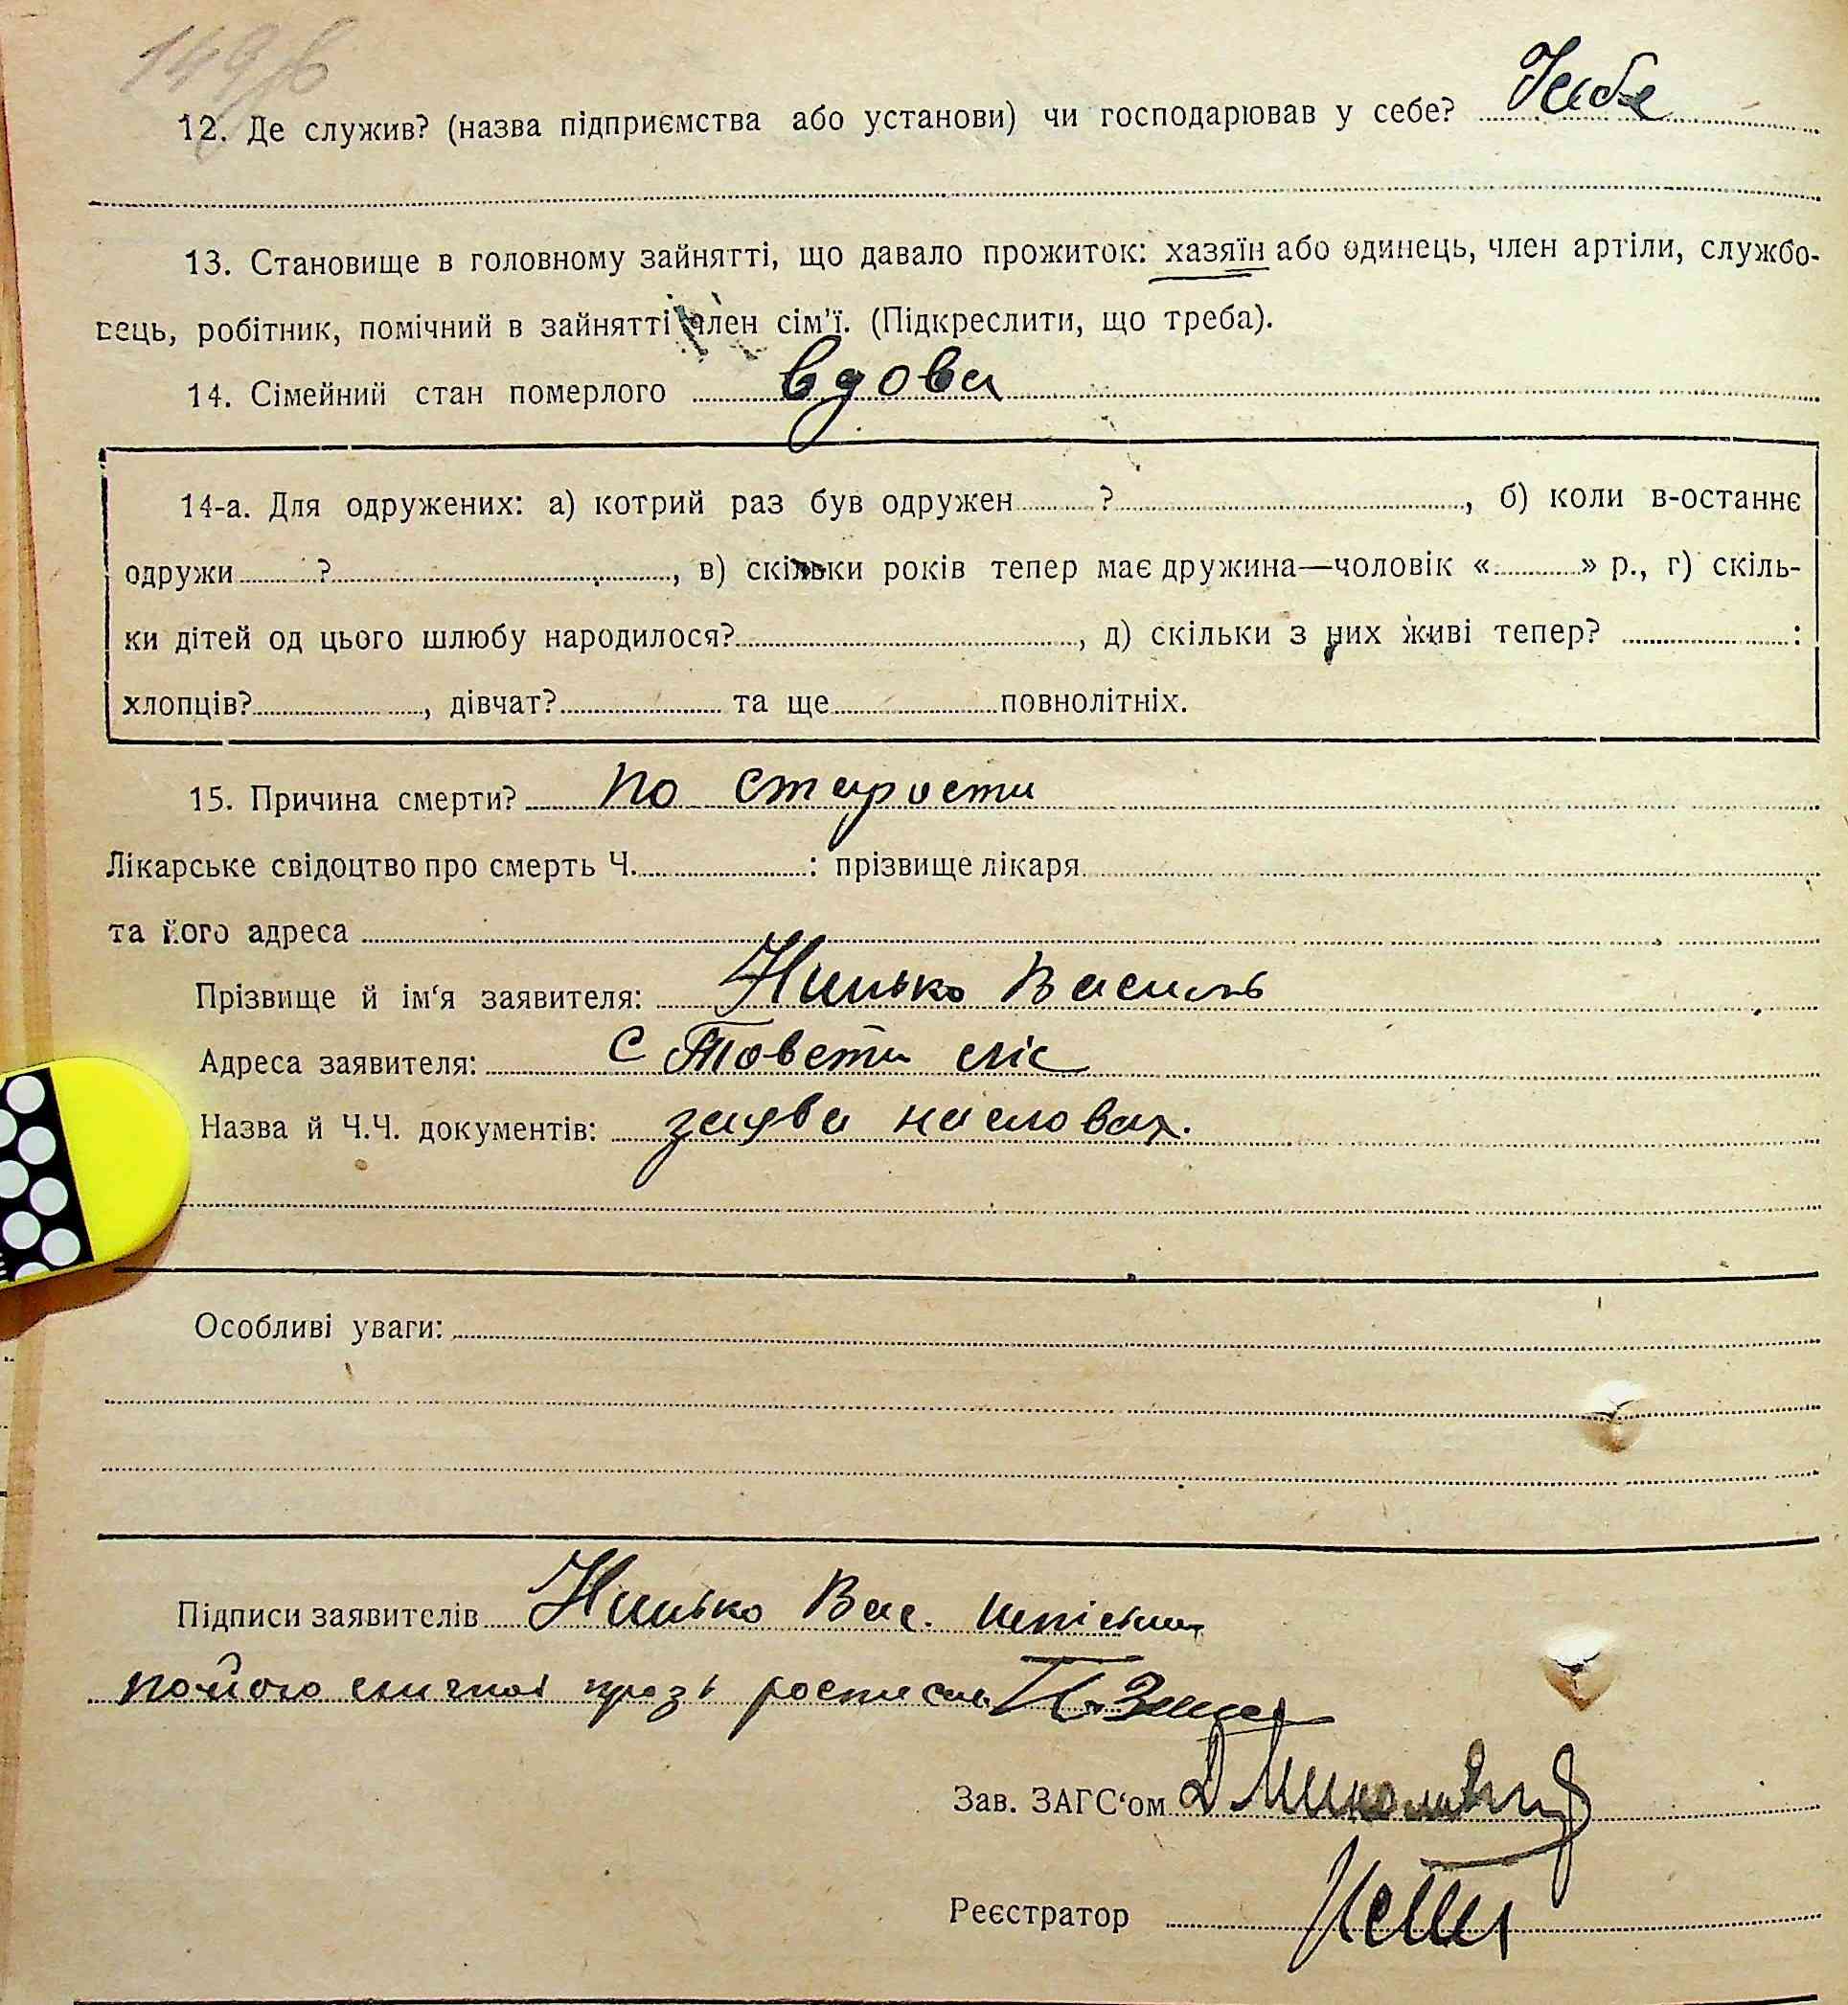 149/б
12. Де служив? (назва підприємства або установи) чи господарював у себе? У себе
13. Становище в головному зайнятті, що давало прожиток: хазяїн або одинець, член артіли, службо-
вець, робітник, помічний в зайнятті член сім'ї. (Підкреслити, що треба).
14. Сімейний стан померлого вдова
14-а. Для одружених: а) котрий раз був одружен ? , б) коли в-останнє
одружи ? , в) скільки років тепер має дружина—чоловік « » р., г) скіль-
ки дітей од цього шлюбу народилося? , д) скільки з них живі тепер? :
хлопців? , дівчат? та ще повнолітніх.
15. Причина смерти? по старости
Лікарське свідоцтво про смерть Ч. : прізвище лікаря
та його адреса
Прізвище й ім'я заявителя: Нинько Василь
Адреса заявителя: с Товсти ліс
Назва й Ч.Ч. документів: заява на словах.
Особливі уваги:
Підписи заявителів Нинько Вас. непісьм
по його личной прозь росписал
Зав. ЗАГС'ом
Реєстратор